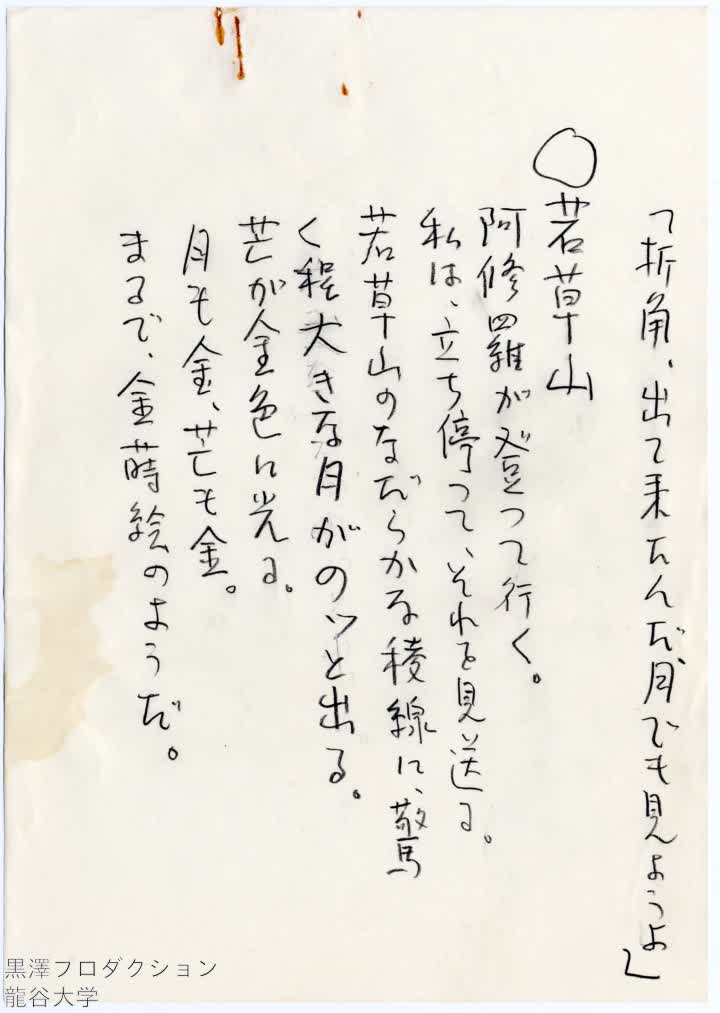 「折角、出て来たんだ、月でも見ようよ」
○若草山
阿修羅が登って行く。
私は、立ち停って、それを見送る。
若草山のなだらかな稜線に、驚
く程大きな月がのッと出る。
芒が金色に光る。
月も金、芒も金。
まるで、金蒔絵のようだ。
黒澤プロダクション
龍谷大学